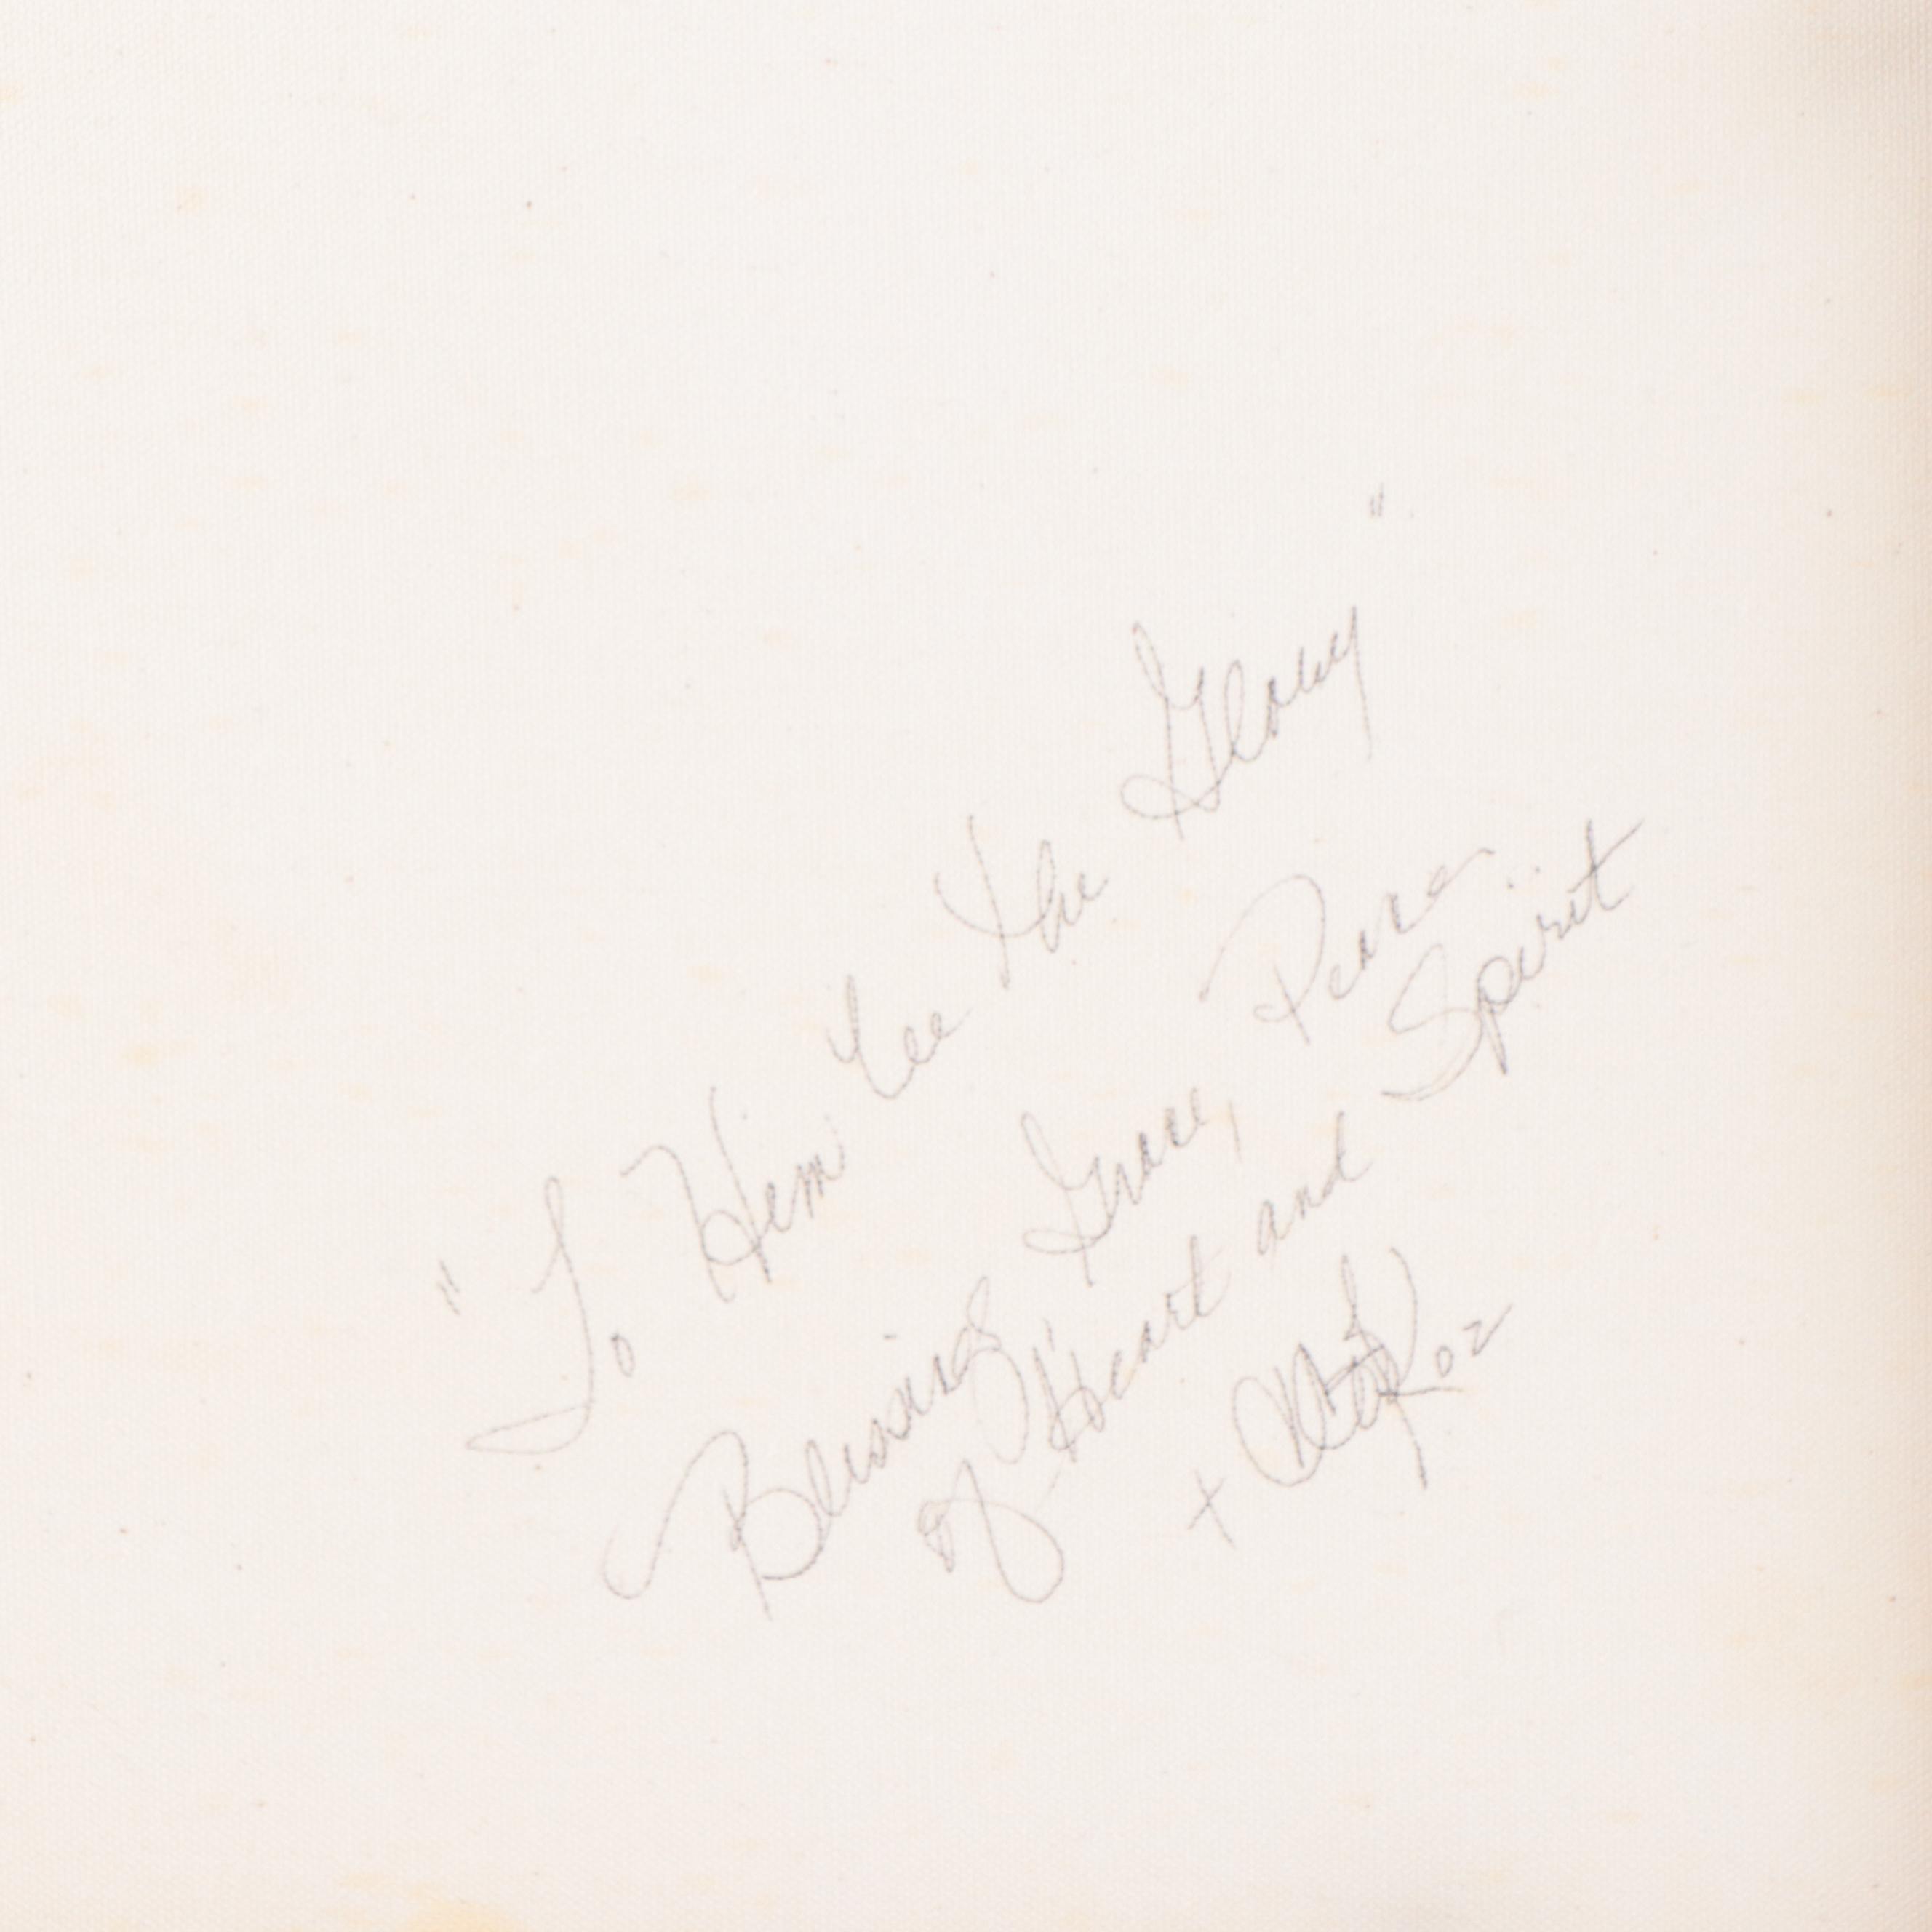 "To Him be the Glory"
Blessings Grace, Peace
of Heart and Spirit
+ 02